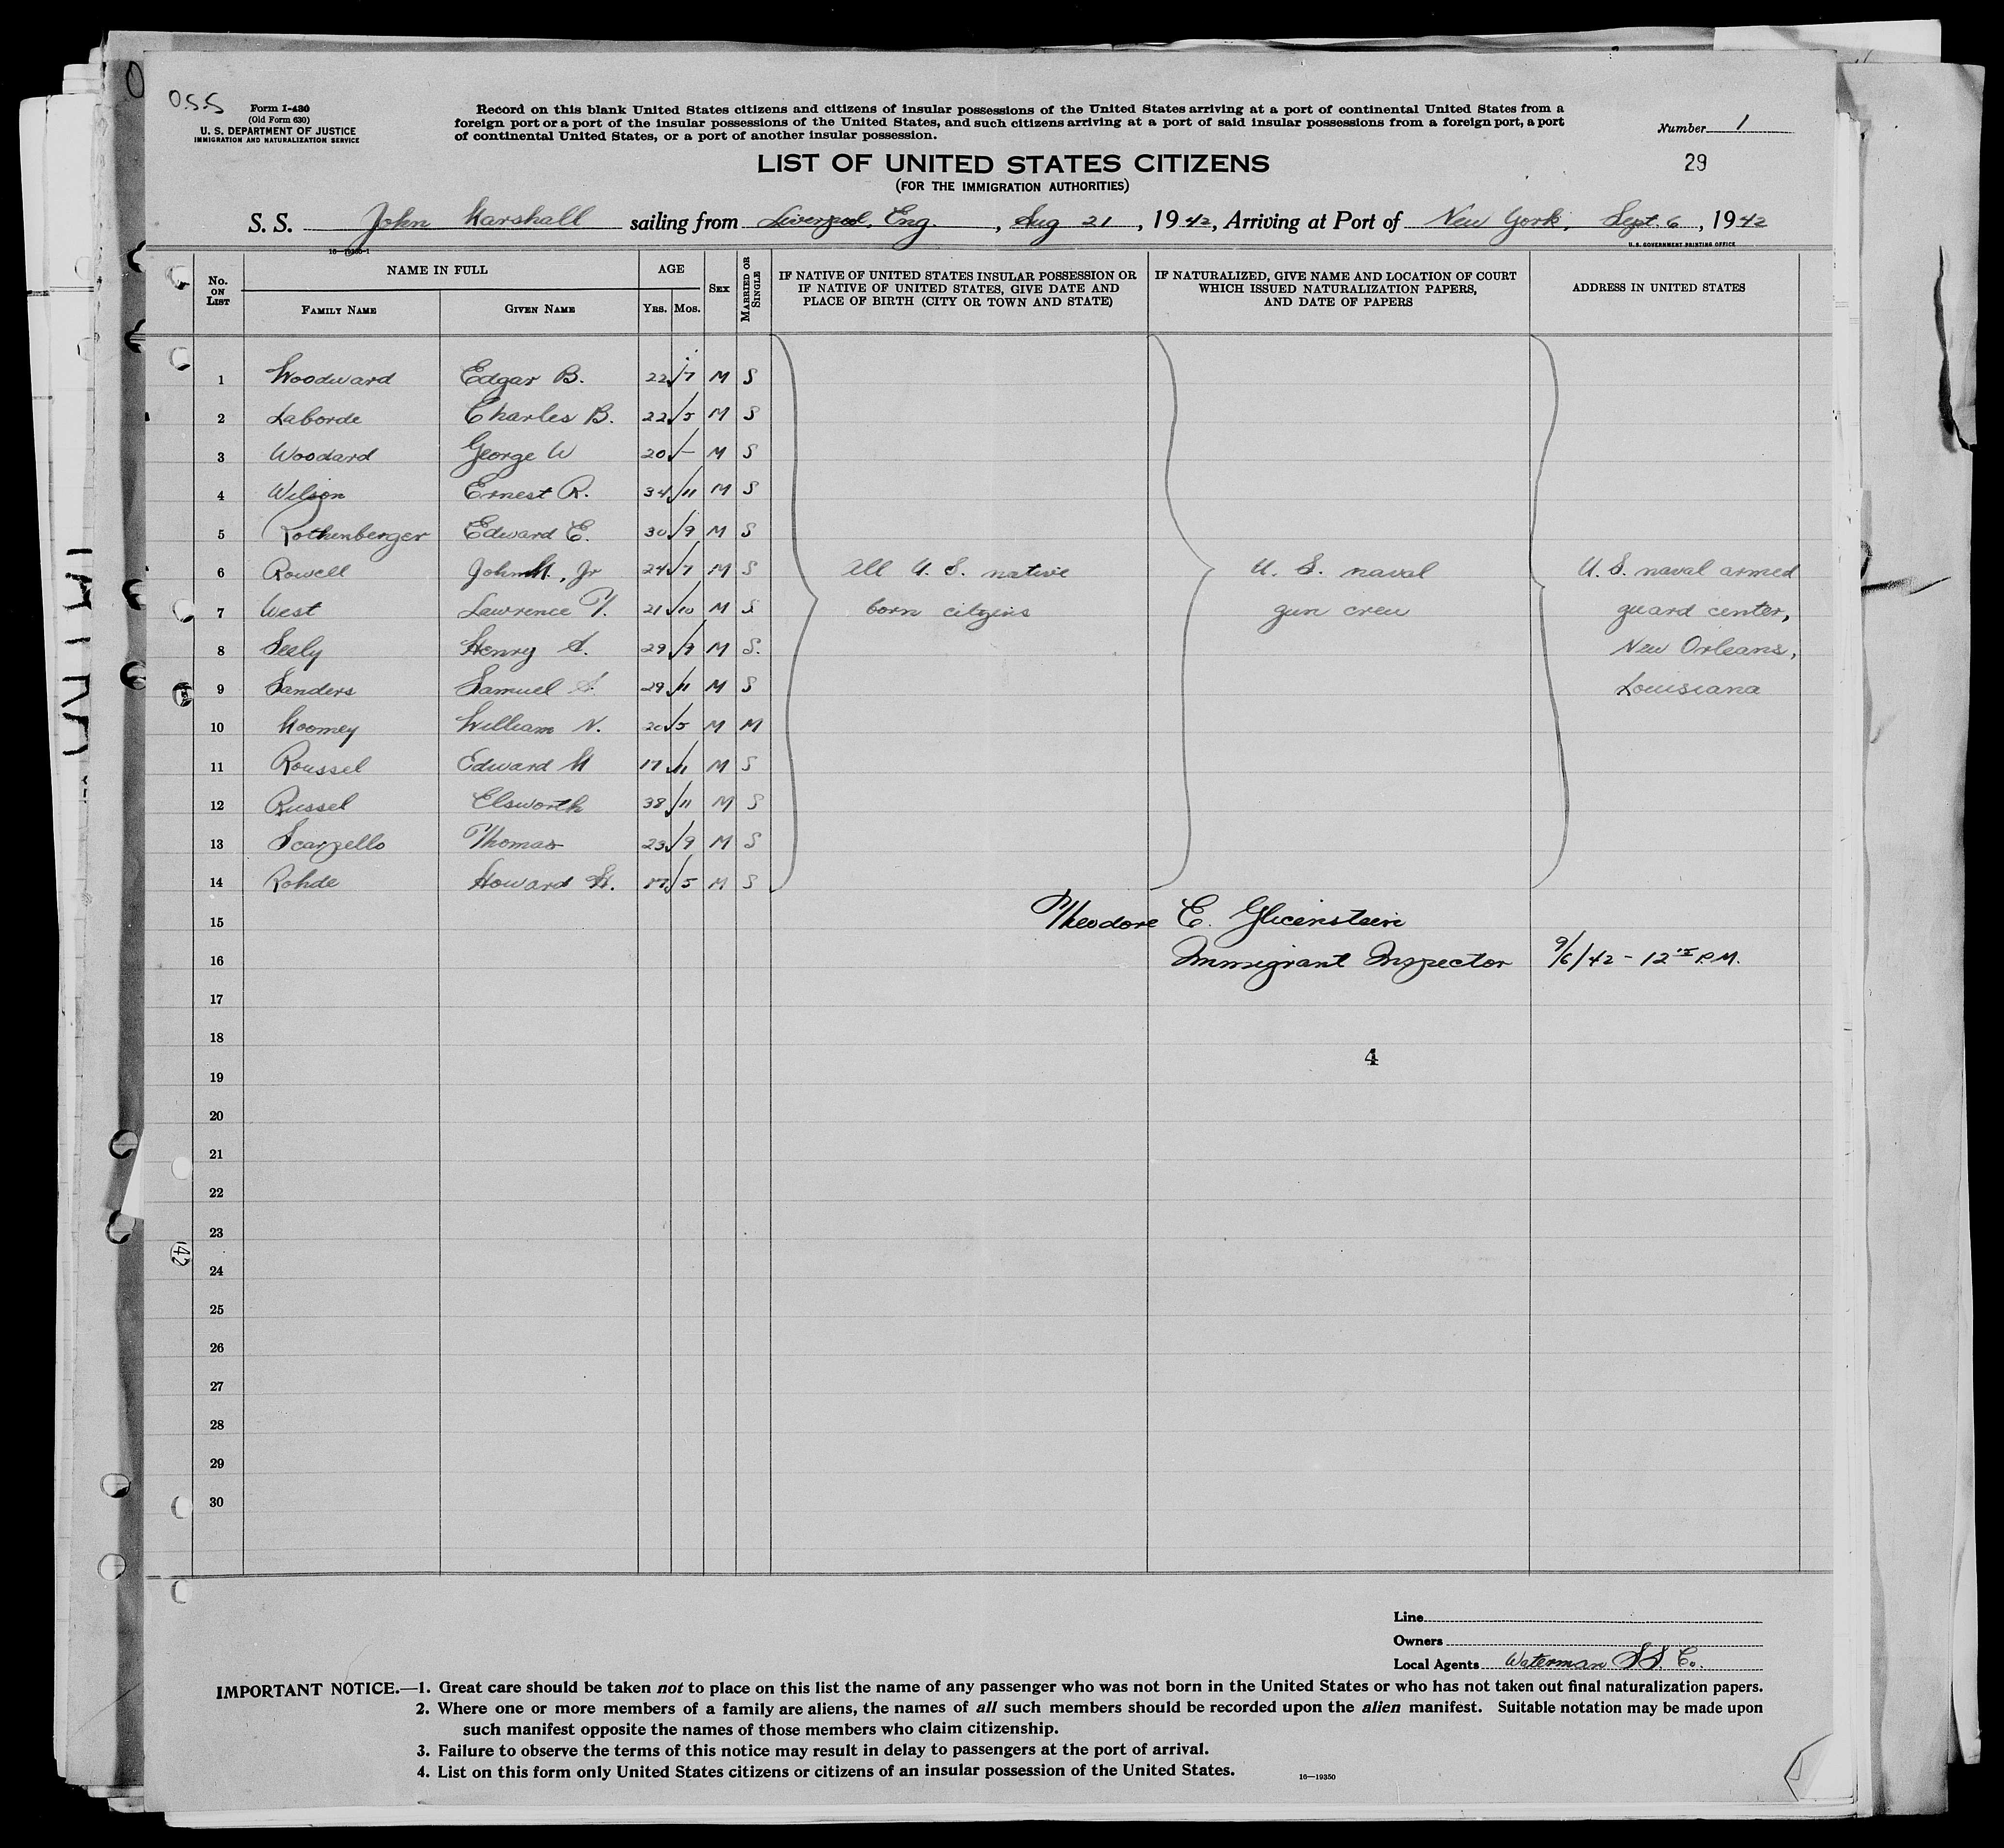 O.S.S
Form I-430
(Old Form 630)
U. S. DEPARTMENT OF JUSTICE
IMMIGRATION AND NATURALIZATION SERVICE
Record on this blank United States citizens and citizens of insular possessions of the United States arriving at a port of continental United States from a
foreign port or a port of the insular possessions of the United States, and such citizens arriving at a port of said insular possessions from a foreign port, a port
of continental United States, or a port of another insular possession.
Number 1
29
LIST OF UNITED STATES CITIZENS
(FOR THE IMMIGRATION AUTHORITIES)
S. S. John Marshall sailing from Liverpool, Eng. , Aug 21 , 1942, Arriving at Port of New York, Sept. 6 , 1942
16-19350-1
U. S. GOVERNMENT PRINTING OFFICE
No. ON LIST
NAME IN FULL
FAMILY NAME
GIVEN NAME
AGE
YRS. MOS.
SEX
MARRIED OR SINGLE
IF NATIVE OF UNITED STATES INSULAR POSSESSION OR
IF NATIVE OF UNITED STATES, GIVE DATE AND
PLACE OF BIRTH (CITY OR TOWN AND STATE)
IF NATURALIZED, GIVE NAME AND LOCATION OF COURT
WHICH ISSUED NATURALIZATION PAPERS,
AND DATE OF PAPERS
ADDRESS IN UNITED STATES
1 Woodward Edgar B. 22 7 M S
2 Laborde Charles B. 22 5 M S
3 Woodard George W 20 — M S
4 Wilson Ernest R. 34 11 M S
5 Rothenberger Edward E. 30 9 M S
6 Rowell John M., Jr 24 7 M S All U. S. native U. S. naval U. S. naval armed
7 West Lawrence T. 21 10 M S born citizens gun crew guard center,
8 Seely Henry A. 29 9 M S. New Orleans,
9 Sanders Samuel S. 29 11 M S Louisiana
10 Moomey William N. 20 5 M M
11 Roussel Edward M 17 11 M S
12 Russel Elsworth 38 11 M S
13 Scarzello Thomas 23 9 M S
14 Rohde Howard H. 17 5 M S
15 Theodore E. Glicenstein
16 Immigrant Inspector 9/6/42 - 12 15 P.M.
17
18
4
19
20
21
22
23
42
24
25
26
27
28
29
30
Line
Owners
Local Agents Waterman S.S. Co.
IMPORTANT NOTICE.—1. Great care should be taken not to place on this list the name of any passenger who was not born in the United States or who has not taken out final naturalization papers.
2. Where one or more members of a family are aliens, the names of all such members should be recorded upon the alien manifest. Suitable notation may be made upon
such manifest opposite the names of those members who claim citizenship.
3. Failure to observe the terms of this notice may result in delay to passengers at the port of arrival.
4. List on this form only United States citizens or citizens of an insular possession of the United States.
16—19350